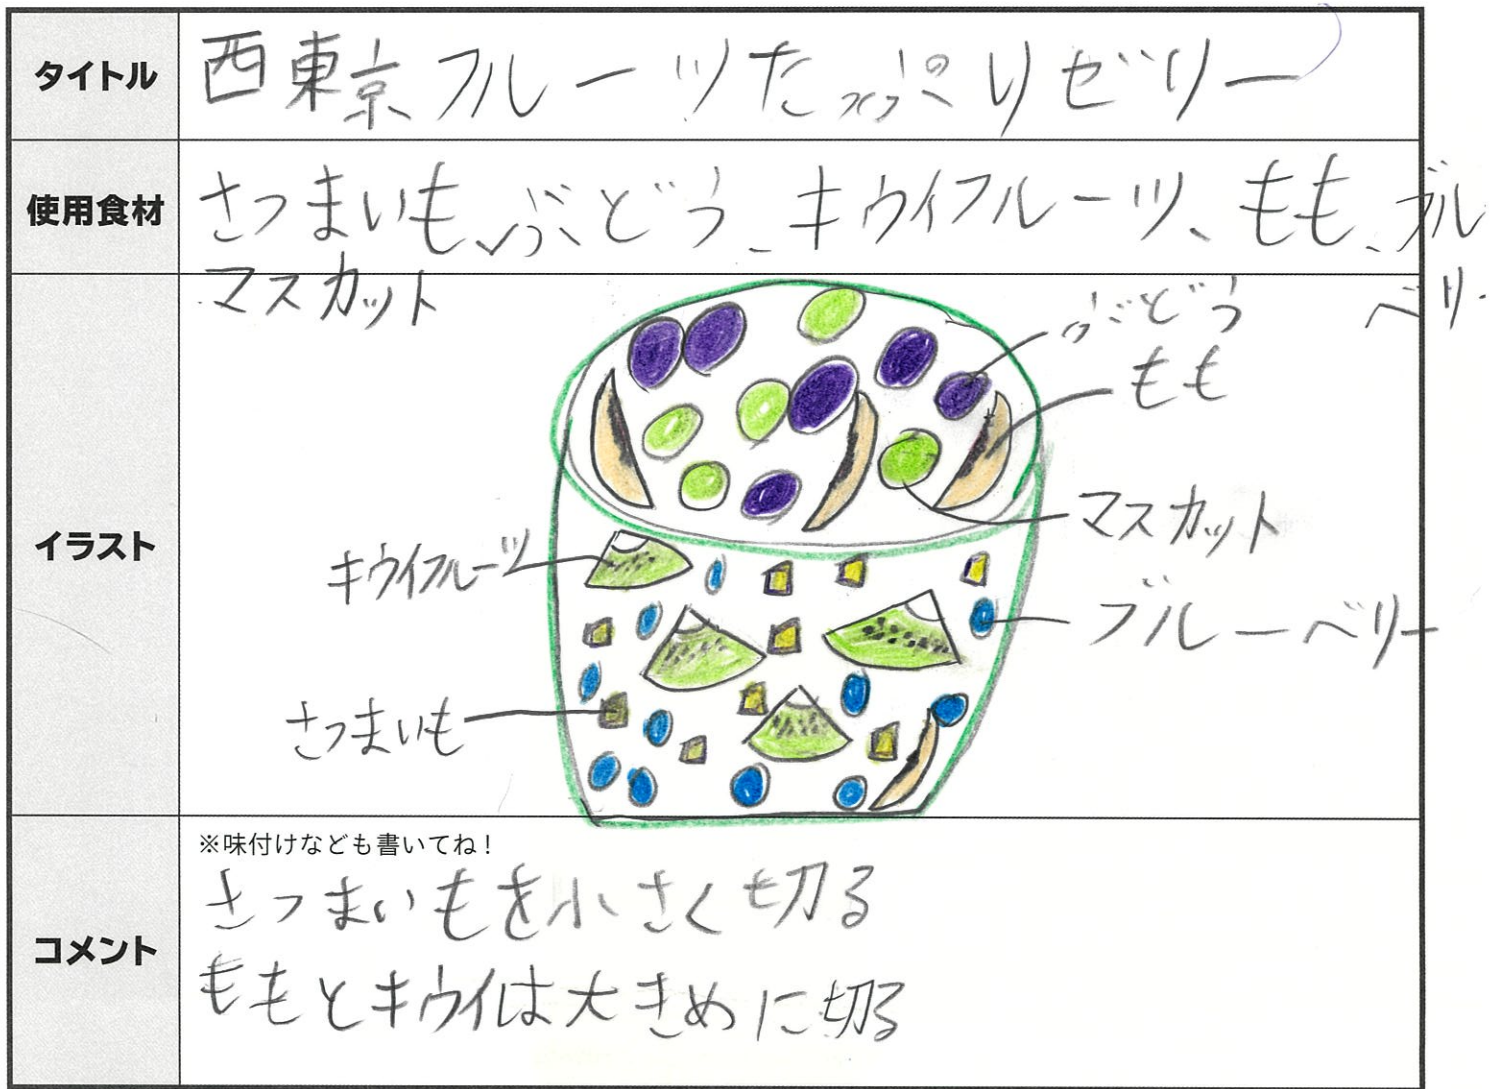 タイトル
西東京フルーツたっぷりゼリー
使用食材
さつまいも、ぶどう、キウイフルーツ、もも、ブル
ベリ-
マスカット
イラスト
ぶどう
もも
マスカット
キウイフルーツ
ブルーベリー
さつまいも
コメント
※味付けなども書いてね!
さつまいもを小さく切る
ももとキウイは大きめに切る